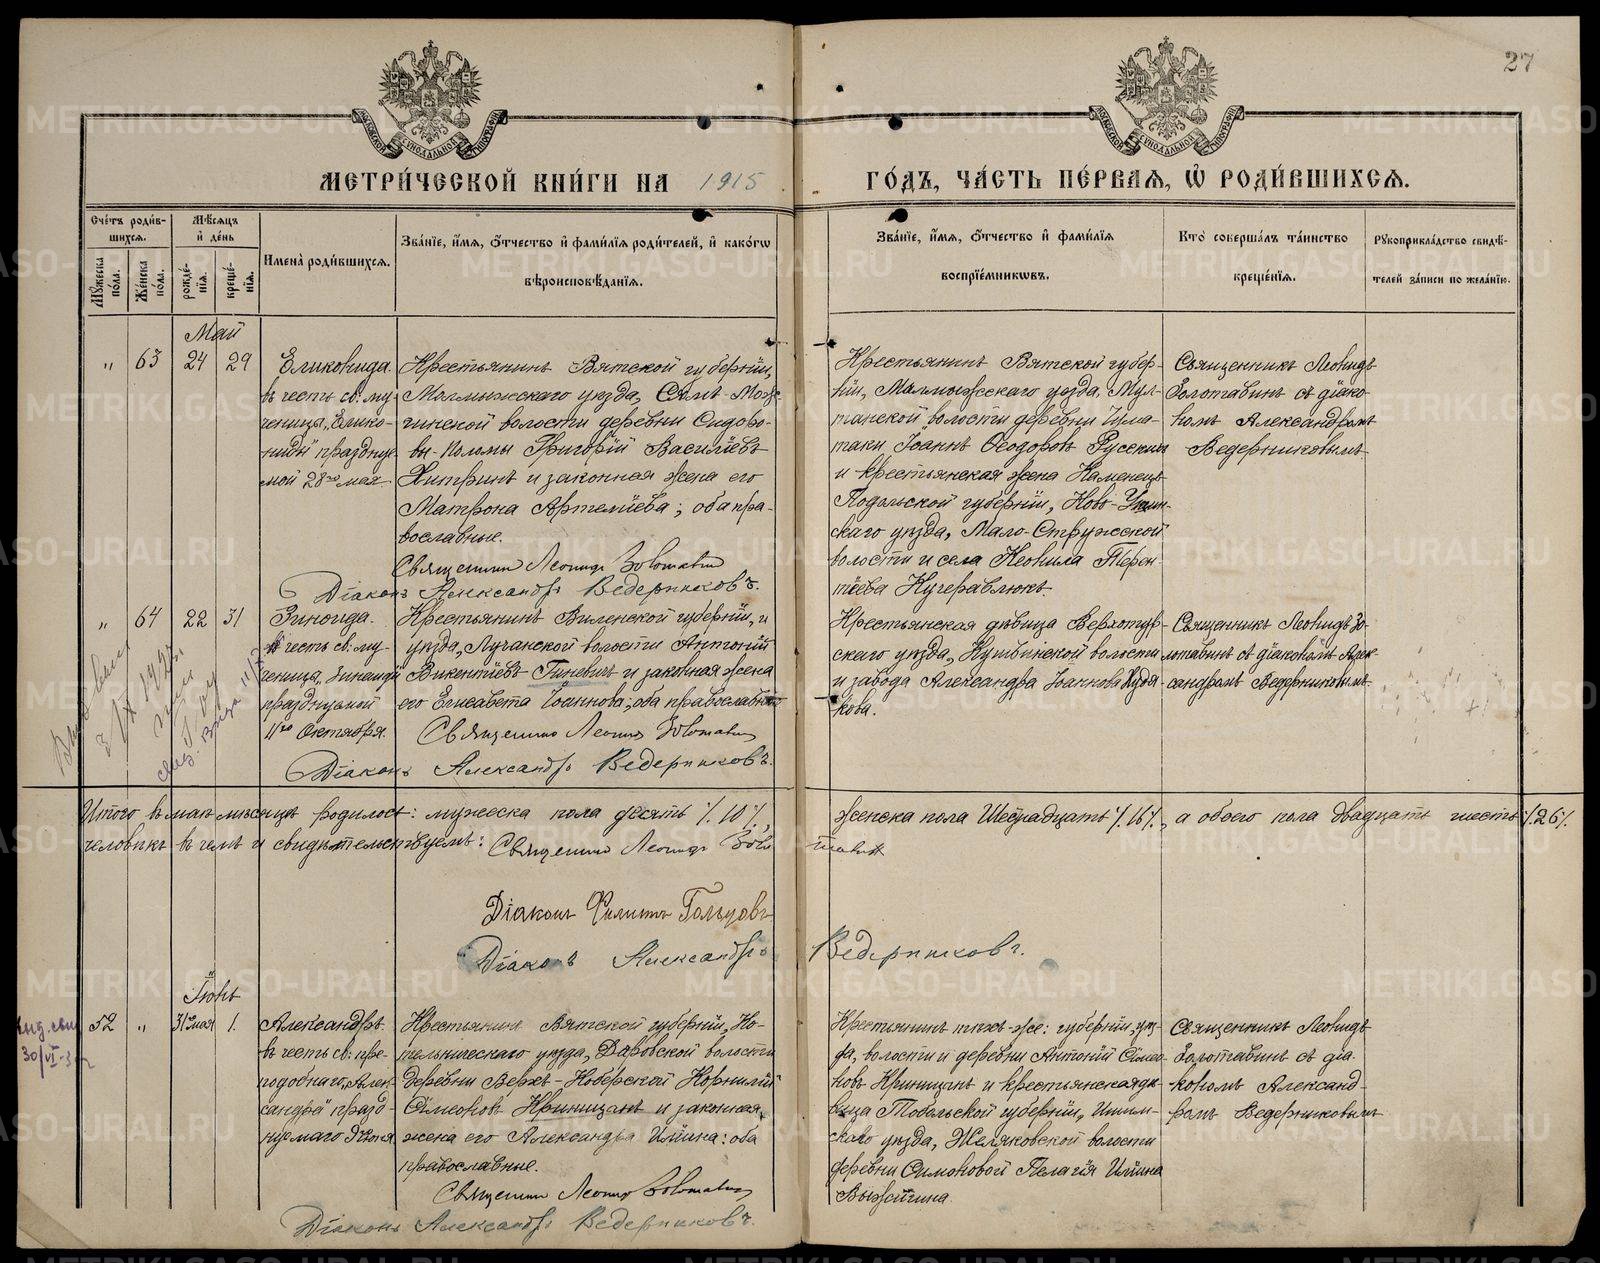 27
МЕТРИ́ЧЕСКОЙ КНИ́ГИ НА 1915 ГО́ДЪ, ЧА́СТЬ ПЕ́РВАЯ, Ѡ РОДИ́ВШИХСЯ.
Сче́тъ роди́вшихся.
Мужеска по́ла.
Же́нска по́ла.
Мѣ́сяцъ и де́нь
рожде́нія.
креще́нія.
Имена̀ роди́вшихся.
Зва́ніе, и́мя, о́тчество и фами́лія роди́телей, и како́гѡ
вѣроисповѣ́данія.
Зва́ніе, и́мя, о́тчество и фами́лія
воспріе́мникѡвъ.
Кто̀ соверша́лъ та́инство
креще́нія.
Рукоприкла́дство свидѣ́-
телей за́писи по жела́нію.
Май
" 63 24 29
Еликонида.
въ честь св: му-
ченицы „Елико-
ниды" празднуе
мой 28го мая.
Крестьянинъ Вятской губерніи,
Малмыжскаго уѣзда, Сямъ-Мож-
гинской волости деревни Сидоро-
вы-Коломы Григорій Васильевъ
Хитринъ и законная жена его
Матрона Артеміева; оба пра-
вославные.
Священникъ Леонидъ Золотавинъ
Діаконъ Александръ Ведерниковъ.
Крестьянинъ Вятской губер-
ніи, Малмыжскаго уѣзда, Мул-
танской волости деревни
Іоаннъ Ѳеодоровъ Русскихъ
и крестьянская жена Каменецъ
Подольской губерніи, Ново-Ушин-
скаго уѣзда, Мало-Стружской
волости и села Неонила Терен-
тіева Кучеравлюкъ.
Священникъ Леонидъ
Золотавинъ съ діако-
номъ Александромъ
Ведерниковымъ.
" 64 22 31
Зинаида.
въ честь св: му-
ченицы „Зинаиды"
празднуемой
11го Октября.
Крестьянинъ Виленской губерніи, и
уѣзда, Лучанской волости Антоній
Викентіевъ Гиневичъ и законная жена
его Елисавета Іоаннова, оба православные
Священникъ Леонидъ Золотавинъ
Діаконъ Александръ Ведерниковъ.
Крестьянская дѣвица Верхотур-
скаго уѣзда, Кушвинской волости
и завода Александра Іоаннова Худя-
кова.
Священникъ Леонидъ Зо-
лотавинъ съ діакономъ Алек-
сандромъ Ведерниковымъ.
Итого въ маѣ мѣсяцѣ родилось: мужеска пола десять ٪ 10 ٪, женска пола Шестнадцать ٪ 16 ٪, а обоего пола двадцать шесть ٪ 26 ٪
человѣкъ въ чемъ и свидѣтельствуемъ: Священникъ Леонидъ Золотавинъ
Діаконъ Филиппъ Гольцовъ
Діаконъ Александръ Ведерниковъ.
Іюнь
52 " 31 мая 1.
Александръ.
въ честь св: пре-
подобнаго „Алек-
сандра" празд-
нуемаго 9 Іюня
Крестьянинъ Вятской губерніи, Ко-
тельническаго уѣзда, Даровской волости
деревни Верхъ-Кобрской Корнилій
Симеоновъ Криницынъ и законная
жена его Александра Ильина: оба
православные.
Священникъ Леонидъ Золотавинъ
Діаконъ Александръ Ведерниковъ.
Крестьянинъ той-же: губерніи, уѣз-
да, волости и деревни Антоній Симео-
новъ Криницынъ и крестьянская дѣ-
вица Тобольской губерніи, Ишим-
скаго уѣзда, Жиляковской волости
деревни Симоновой Пелагія Ильина
Выжигина
Священникъ Леонидъ
Золотавинъ съ діа-
кономъ Александ-
ромъ Ведерниковымъ
METRIKI.GASO-URAL.RU